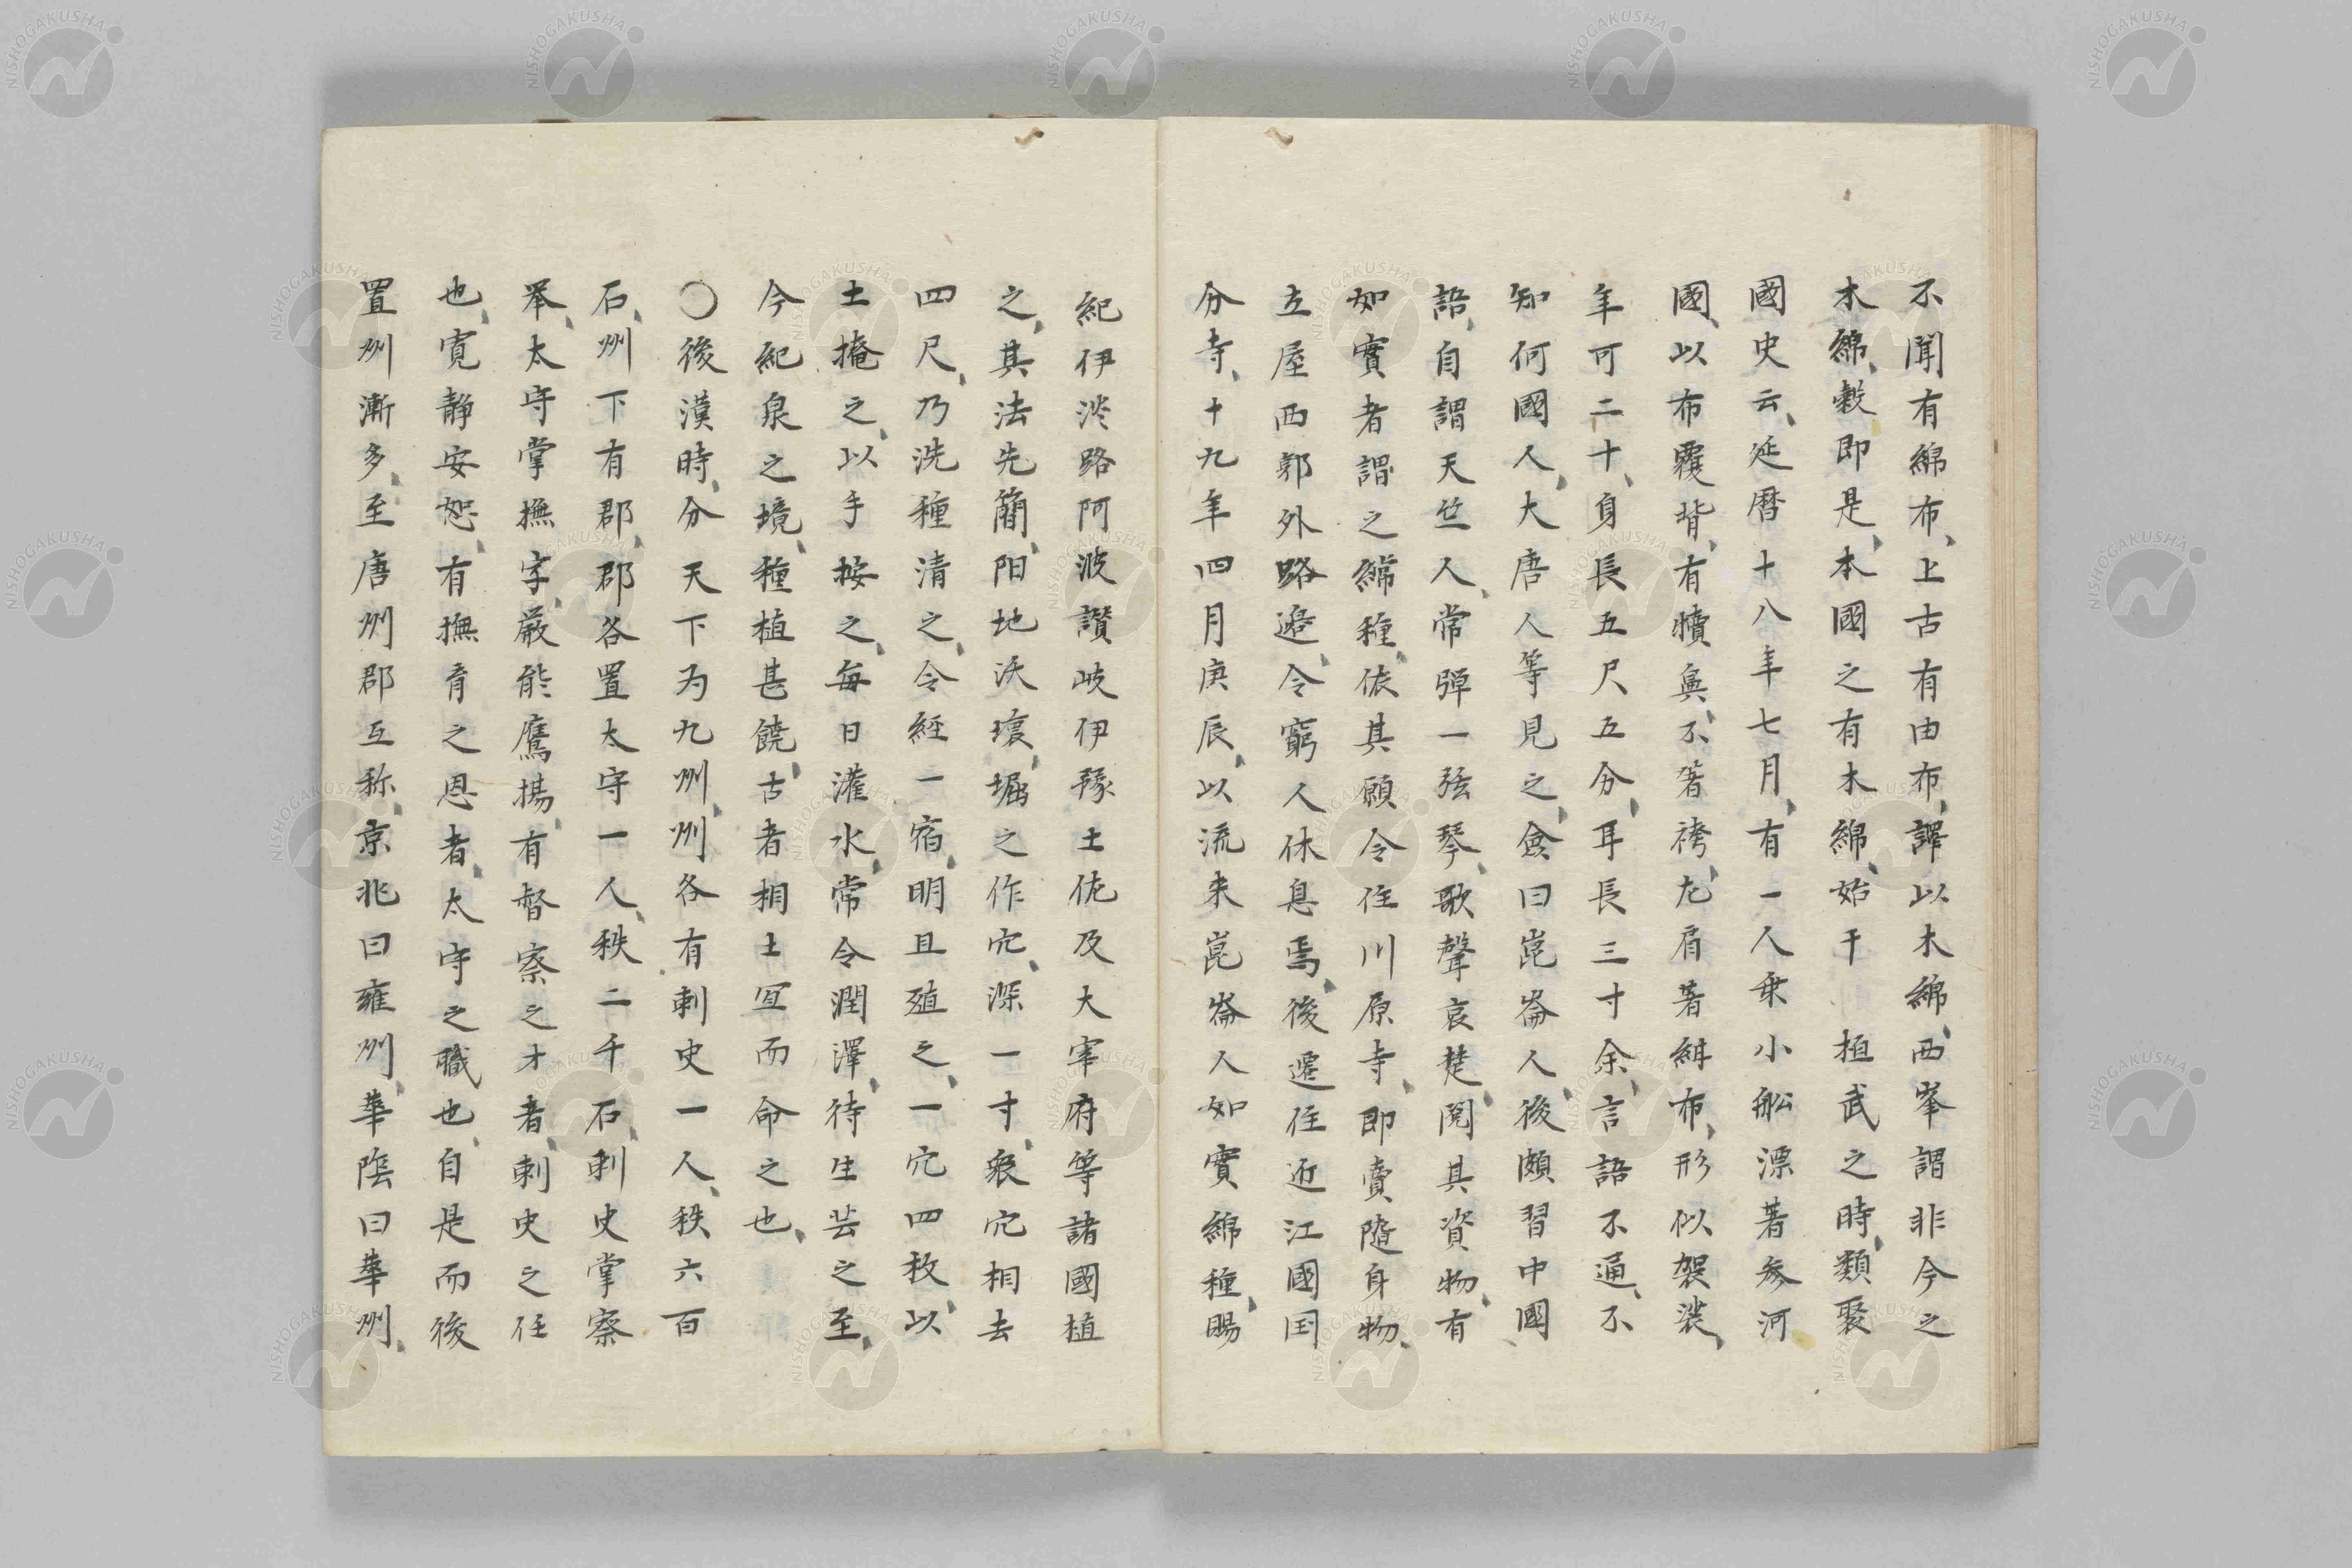 不聞有綿布、上古有由布、譯以木綿、西峯謂非今之
木綿、穀即是、本國之有木綿、始于　桓武之時、類聚
國史云、延暦十八年七月、有一人乗小舩漂著参河
國、以布覆背、有犢鼻、不著袴、左肩著紺布、形似袈裟、
年可二十、身長五尺五分、耳長三寸余、言語不通、不
知何國人、大唐人等見之、僉曰崑崙人、後頗習中國
語、自謂天竺人、常弾一弦琴、歌聲哀楚、閲其資物、有
如實者謂之綿種、依其願令住川原寺、即賣随身物、
立屋西郭外路邉、令窮人休息焉、後遷住近江國国
分寺、十九年四月庚辰、以流来崑崙人如實綿種、賜
紀伊淡路阿波讃岐伊豫土佐及大宰府等諸國植
之、其法先簡、陽地沃壤、堀之作穴、深一寸、衆穴相去
四尺、乃洗種清之、令經一宿、明且殖之、一穴四枚、以
土掩之、以手按之、毎日灌水、常令潤澤、待生芸之、至
今紀泉之境、種植甚饒、古者相土宜而命之也、
〇後漢時、分天下为九州、州各有刺史一人、秩六百
石、州下有郡、郡各置太守一人、秩二千石、刺史掌察
举、太守掌撫字、厳能鷹揚、有督察之才者、刺史之任
也、寛静安恕、有撫育之恩者、太守之職也、自是而後
置州漸多、至唐州郡互称、京兆曰雍州、華陰曰華州、